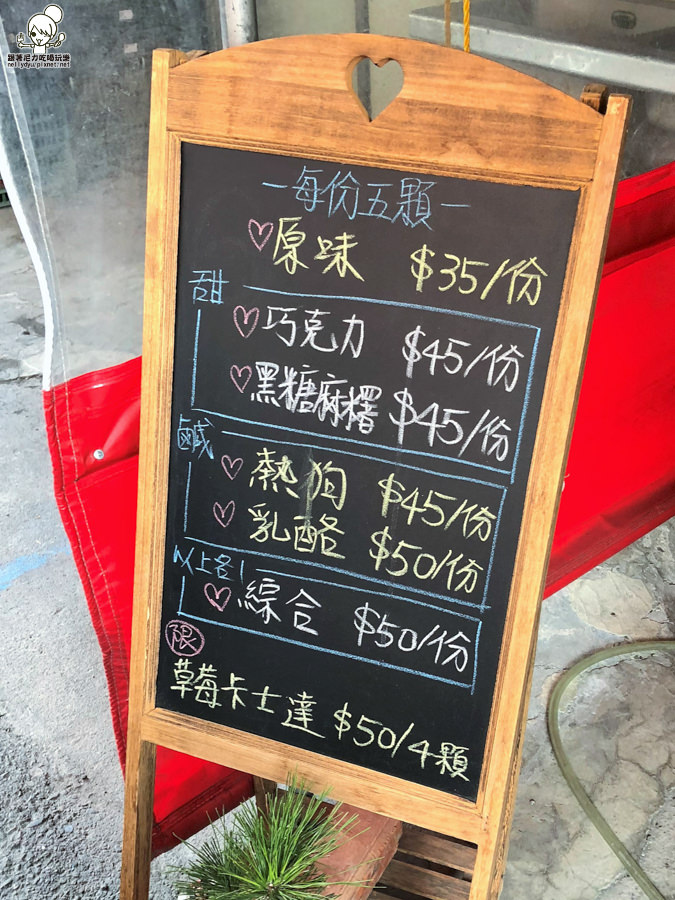 跟著尼力吃喝玩樂
nellydyu.pixnet.net
－每份五顆－
♡原味 $35/份
甜
♡巧克力 $45/份
♡黑糖麻糬 $45/份
鹹
♡熱狗 $45/份
♡乳酪 $50/份
以上各1
♡綜合 $50/份
限
草莓卡士達 $50/4顆